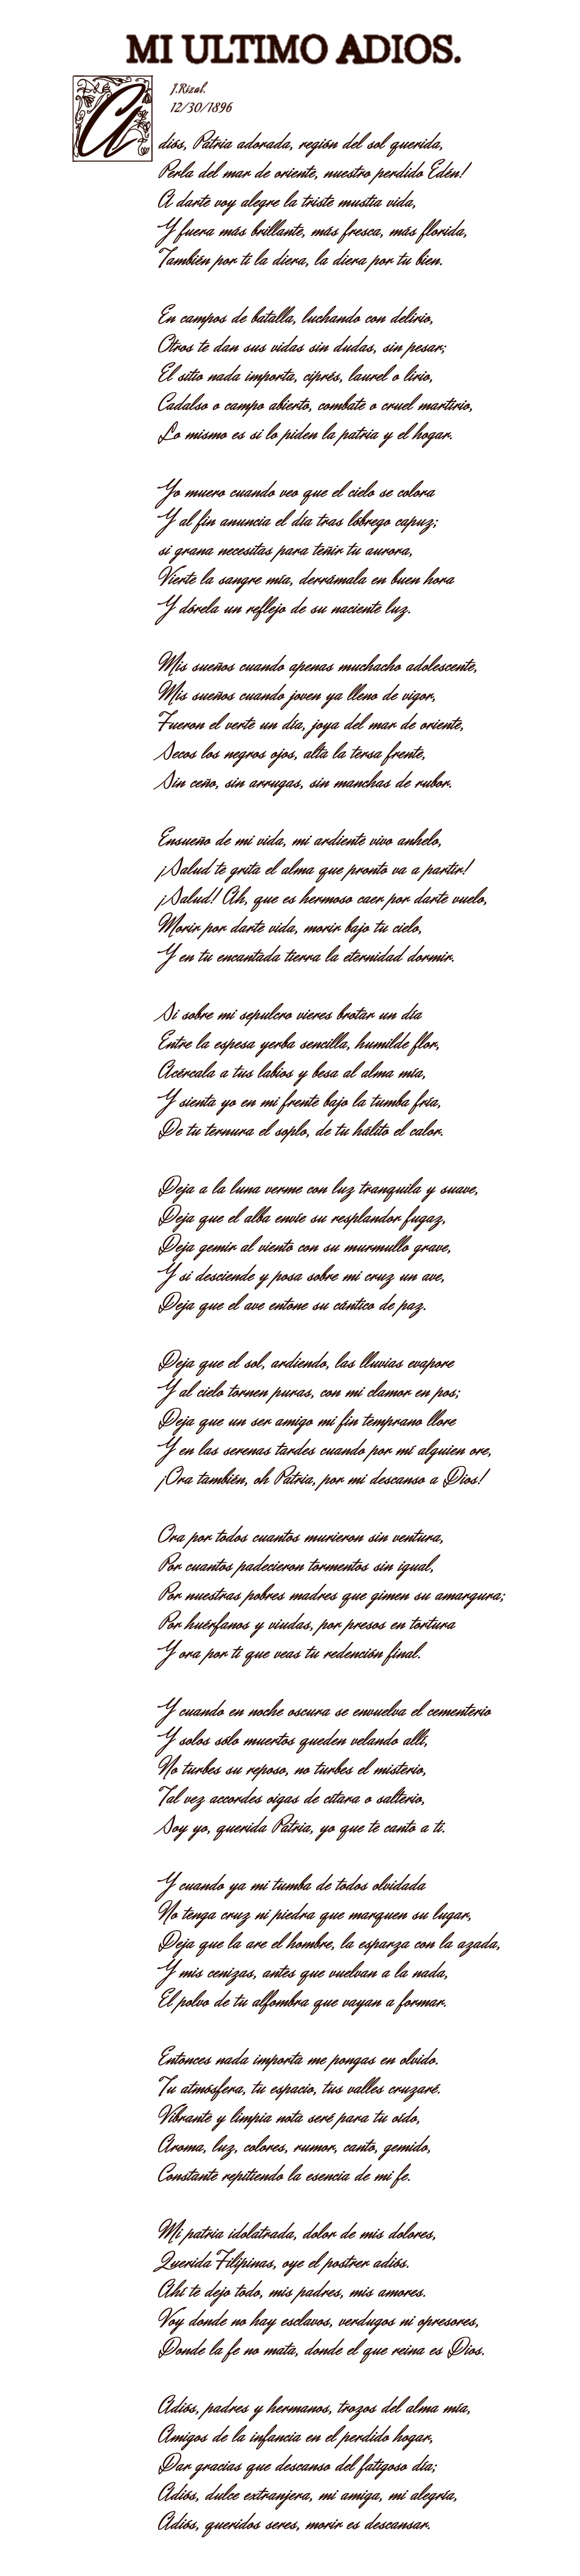 MI ULTIMO ADIOS.
J.Rizal.
12/30/1896
Adiós, Patria adorada, región del sol querida,
Perla del mar de oriente, nuestro perdido Edén!
A darte voy alegre la triste mustia vida,
Y fuera más brillante, más fresca, más florida,
También por ti la diera, la diera por tu bien.
En campos de batalla, luchando con delirio,
Otros te dan sus vidas sin dudas, sin pesar;
El sitio nada importa, ciprés, laurel o lirio,
Cadalso o campo abierto, combate o cruel martirio,
Lo mismo es si lo piden la patria y el hogar.
Yo muero cuando veo que el cielo se colora
Y al fin anuncia el día tras lóbrego capuz;
si grana necesitas para teñir tu aurora,
Vierte la sangre mía, derrámala en buen hora
Y dórela un reflejo de su naciente luz.
Mis sueños cuando apenas muchacho adolescente,
Mis sueños cuando joven ya lleno de vigor,
Fueron el verte un día, joya del mar de oriente,
Secos los negros ojos, alta la tersa frente,
Sin ceño, sin arrugas, sin manchas de rubor.
Ensueño de mi vida, mi ardiente vivo anhelo,
¡Salud te grita el alma que pronto va a partir!
¡Salud! Ah, que es hermoso caer por darte vuelo,
Morir por darte vida, morir bajo tu cielo,
Y en tu encantada tierra la eternidad dormir.
Si sobre mi sepulcro vieres brotar un día
Entre la espesa yerba sencilla, humilde flor,
Acércala a tus labios y besa al alma mía,
Y sienta yo en mi frente bajo la tumba fría,
De tu ternura el soplo, de tu hálito el calor.
Deja a la luna verme con luz tranquila y suave,
Deja que el alba envíe su resplandor fugaz,
Deja gemir al viento con su murmullo grave,
Y si desciende y posa sobre mi cruz un ave,
Deja que el ave entone su cántico de paz.
Deja que el sol, ardiendo, las lluvias evapore
Y al cielo tornen puras, con mi clamor en pos;
Deja que un ser amigo mi fin temprano llore
Y en las serenas tardes cuando por mí alguien ore,
¡Ora también, oh Patria, por mi descanso a Dios!
Ora por todos cuantos murieron sin ventura,
Por cuantos padecieron tormentos sin igual,
Por nuestras pobres madres que gimen su amargura;
Por huérfanos y viudas, por presos en tortura
Y ora por ti que veas tu redención final.
Y cuando en noche oscura se envuelva el cementerio
Y solos sólo muertos queden velando allí,
No turbes su reposo, no turbes el misterio,
Tal vez accordes oigas de cítara o salterio,
Soy yo, querida Patria, yo que te canto a ti.
Y cuando ya mi tumba de todos olvidada
No tenga cruz ni piedra que marquen su lugar,
Deja que la are el hombre, la esparza con la azada,
Y mis cenizas, antes que vuelvan a la nada,
El polvo de tu alfombra que vayan a formar.
Entonces nada importa me pongas en olvido.
Tu atmósfera, tu espacio, tus valles cruzaré.
Vibrante y limpia nota seré para tu oído,
Aroma, luz, colores, rumor, canto, gemido,
Constante repitiendo la esencia de mi fe.
Mi patria idolatrada, dolor de mis dolores,
Querida Filipinas, oye el postrer adiós.
Ahí te dejo todo, mis padres, mis amores.
Voy donde no hay esclavos, verdugos ni opresores,
Donde la fe no mata, donde el que reina es Dios.
Adiós, padres y hermanos, trozos del alma mía,
Amigos de la infancia en el perdido hogar,
Dar gracias que descanso del fatigoso día;
Adiós, dulce extranjera, mi amiga, mi alegría,
Adiós, queridos seres, morir es descansar.